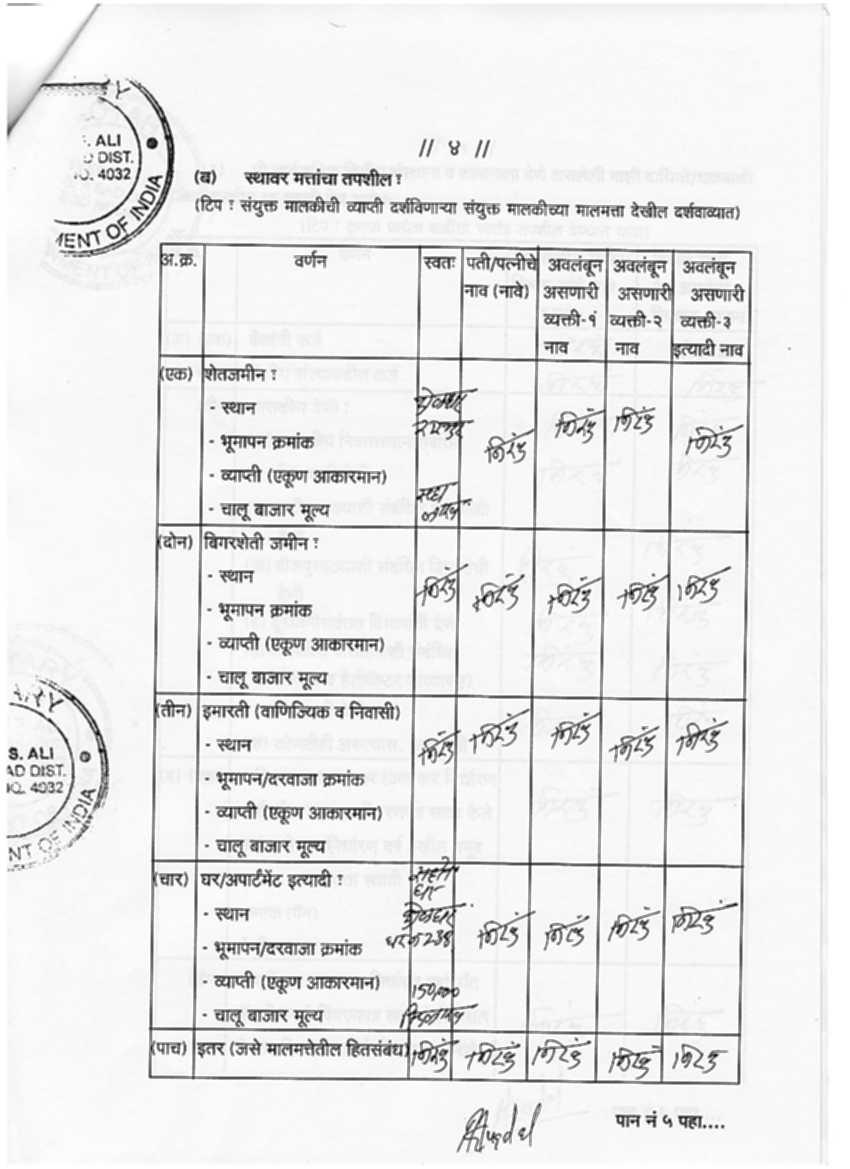 . ALI
DIST.
NO. 4032
MENT OF INDIA
// ४ //
(ब) स्थावर मत्तांचा तपशील :
(टिप : संयुक्त मालकीची व्याप्ती दर्शविणाऱ्या संयुक्त मालकीच्या मालमत्ता देखील दर्शवाव्यात)
अ.क्र. वर्णन स्वतः पती/पत्नीचे अवलंबून अवलंबून अवलंबून
नाव (नावे) असणारी असणारी असणारी
व्यक्ती-१ व्यक्ती-२ व्यक्ती-३
नाव नाव इत्यादी नाव
(एक) शेतजमीन :
- स्थान
- भूमापन क्रमांक निरंक निरंक निरंक निरंक
- व्याप्ती (एकूण आकारमान)
- चालू बाजार मूल्य
(दोन) बिगरशेती जमीन :
- स्थान निरंक निरंक निरंक निरंक निरंक
- भूमापन क्रमांक
- व्याप्ती (एकूण आकारमान)
- चालू बाजार मूल्य
(तीन) इमारती (वाणिज्यिक व निवासी)
- स्थान निरंक निरंक निरंक निरंक निरंक
- भूमापन/दरवाजा क्रमांक
- व्याप्ती (एकूण आकारमान)
- चालू बाजार मूल्य
S. ALI
AD DIST.
NO. 4032
NT OF INDIA
(चार) घर/अपार्टमेंट इत्यादी :
- स्थान
- भूमापन/दरवाजा क्रमांक निरंक निरंक निरंक निरंक
- व्याप्ती (एकूण आकारमान)
- चालू बाजार मूल्य
(पाच) इतर (जसे मालमत्तेतील हितसंबंध) निरंक निरंक निरंक निरंक निरंक
पान नं ५ पहा....